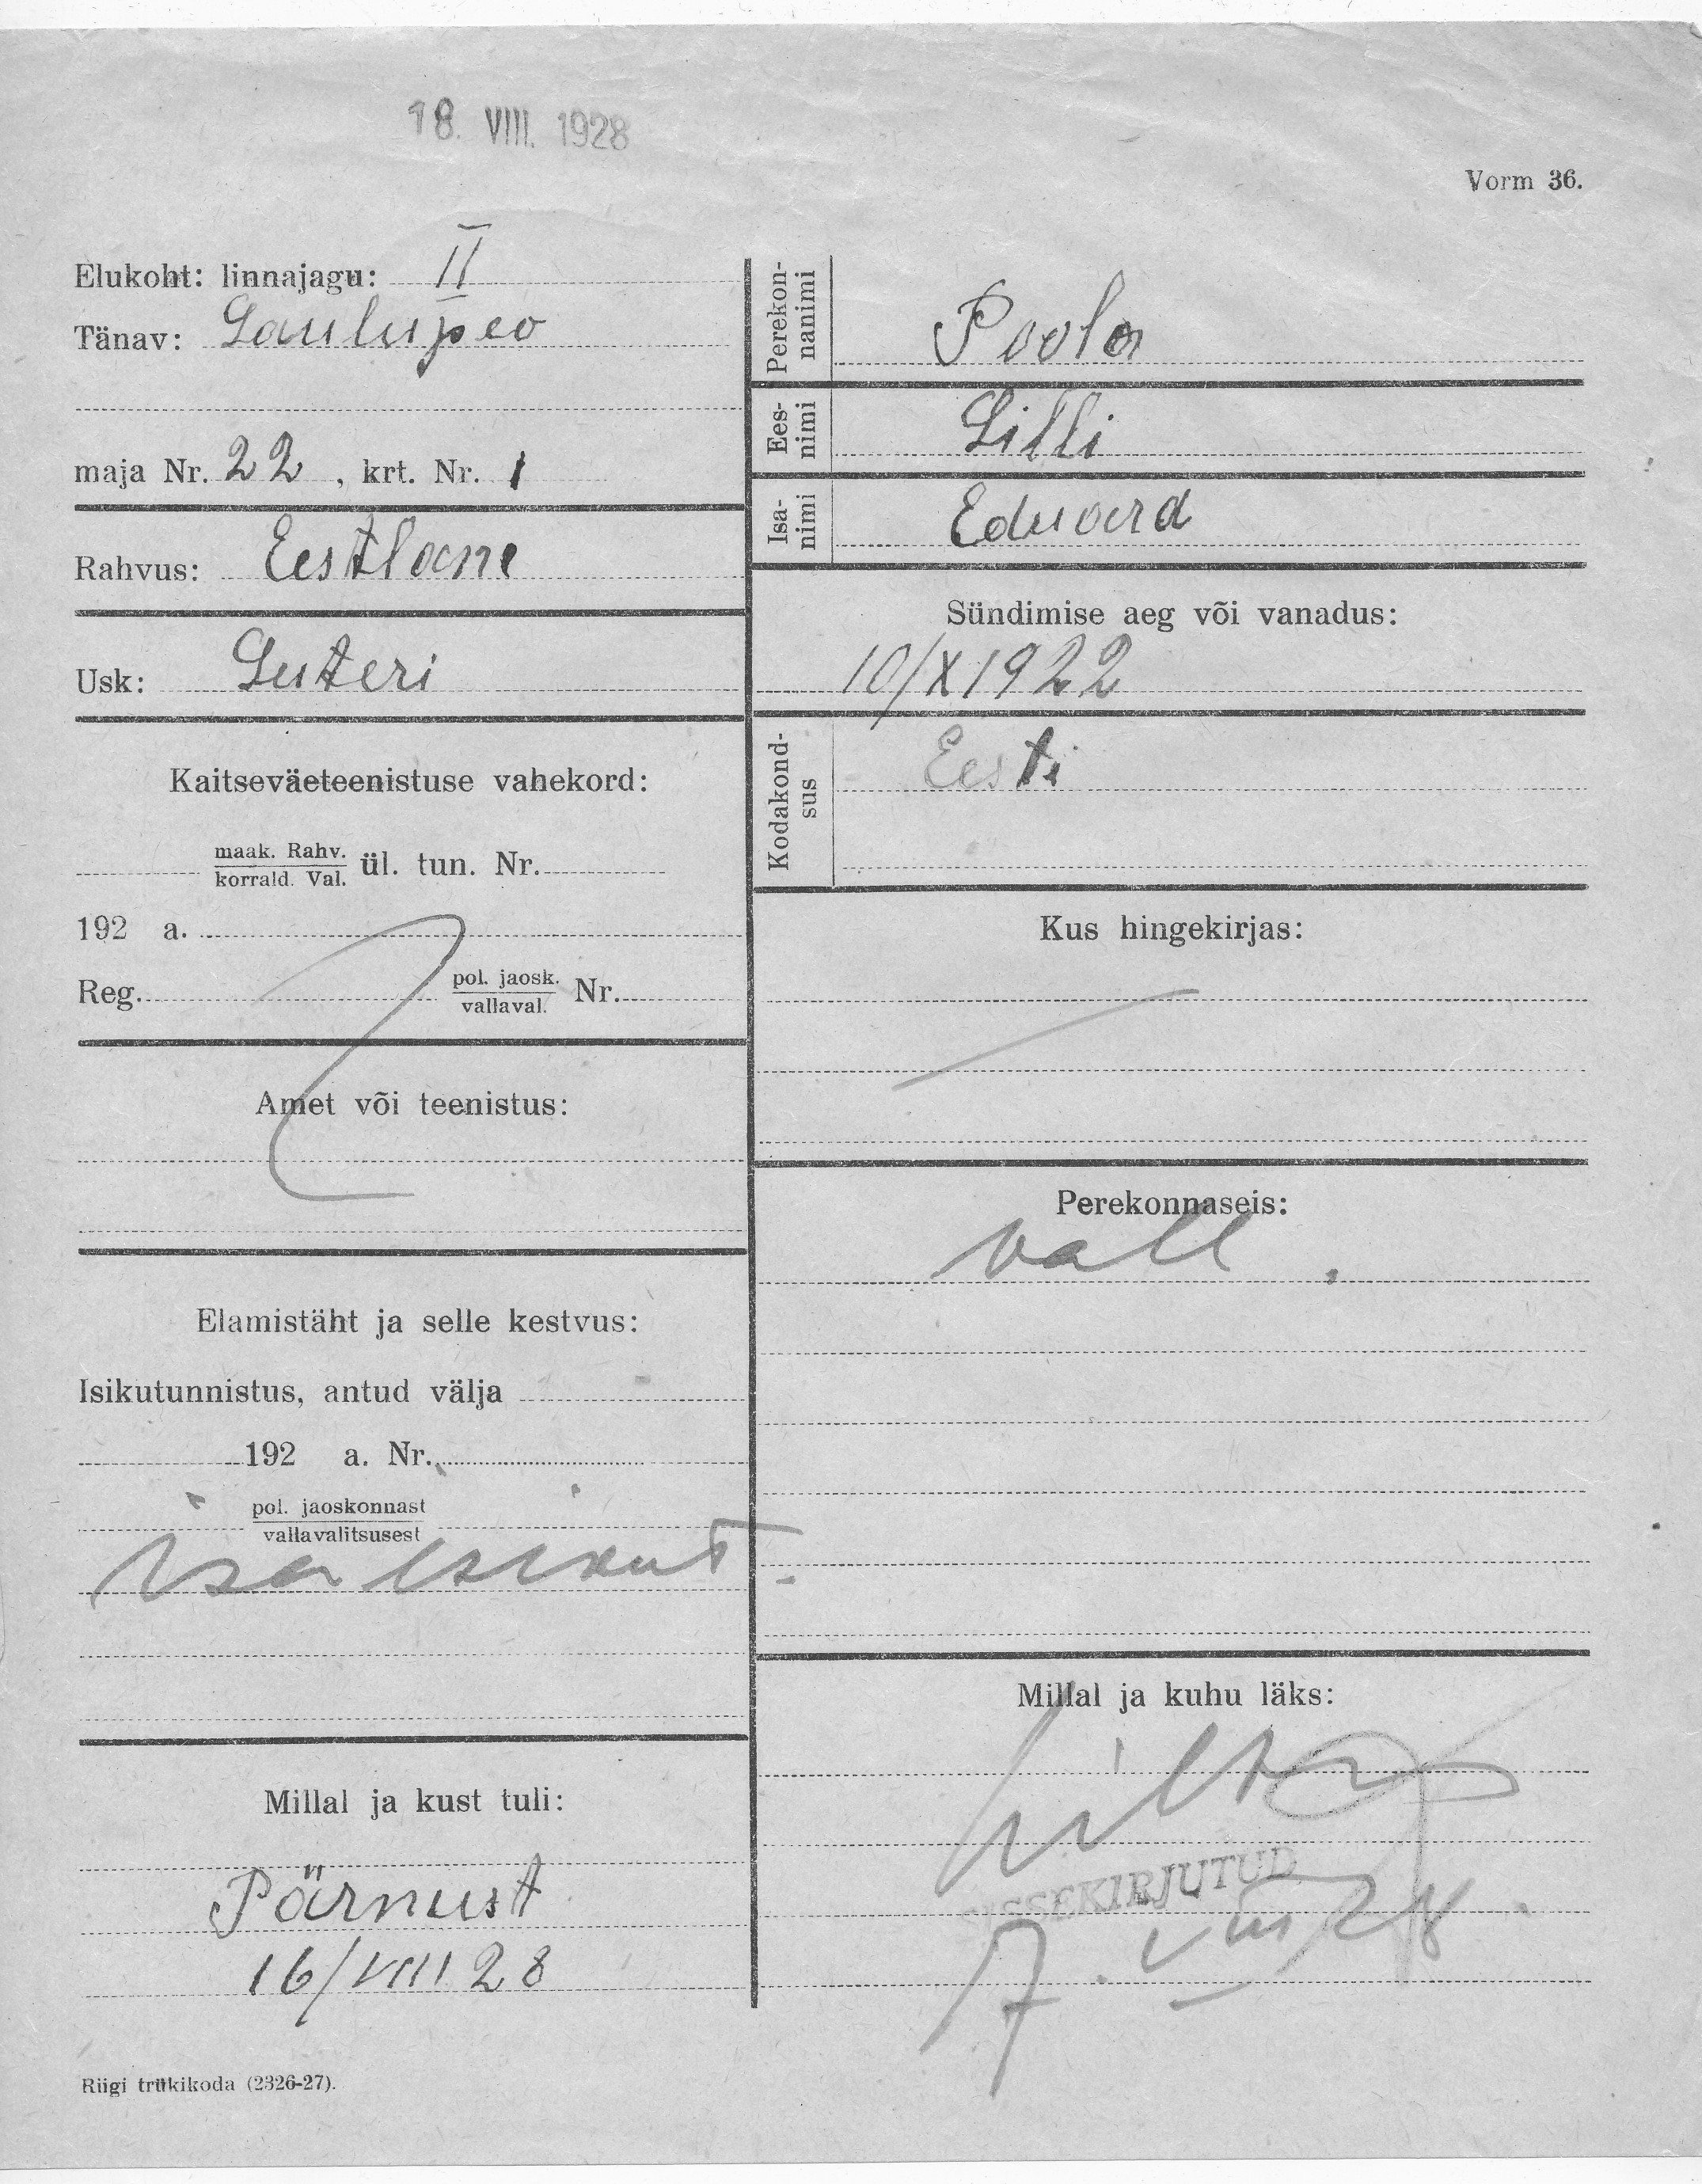 18. VIII. 1928
Vorm 36.
Elukoht: linnajagu: II
Tänav: Laulupeo
maja Nr. 22, krt. Nr. 1
Rahvus: Eestlane
Usk: Luteri
Kaitseväeteenistuse vahekord:
maak. Rahv.
korrald. Val. ül. tun. Nr.
192 a.
Reg. pol. jaosk.
vallaval. Nr.
Amet või teenistus:
Elamistäht ja selle kestvus:
Isikutunnistus, antud välja
192 a. Nr.
pol. jaoskonnast
vallavalitsusest
isa
Millal ja kust tuli:
Pärnust
16/VIII 28
Riigi trükikoda (2326-27).
Perekon-
nanimi
Poola
Ees-
nimi
Lilli
Isa-
nimi
Eduard
Sündimise aeg või vanadus:
10/X 1922
Kodakond-
sus
Eesti
Kus hingekirjas:
Perekonnaseis:
vall.
Millal ja kuhu läks:
SISSEKIRJUTUD
17. VIII 28